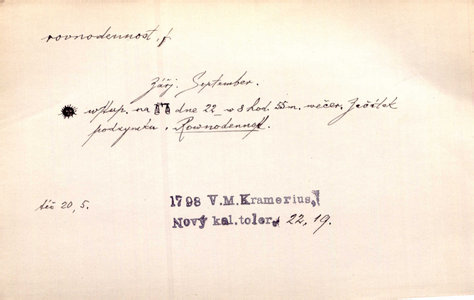 rovnodennost, f
Zářj. September.
wstup. na dne 22 w 8 hod. 55 m. wečer, Začátek
podzymku, Rownodennost.
též 20, 5.
1798 V.M.Kramerius,
Nový kal.toler., 22, 19.